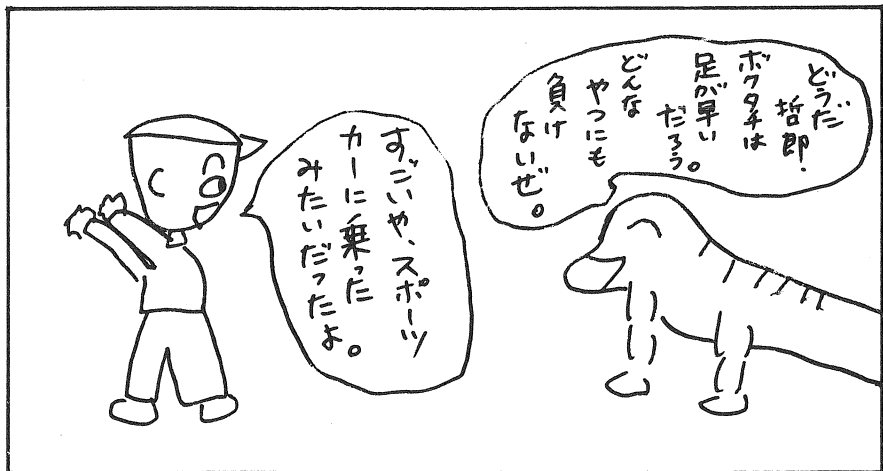 どうだ
哲郎.
ボクタチは
足が早い
だろう。
どんな
やつにも
負け
ないぜ。
すごいや、スポーツ
カーに乗った
みたいだったよ。